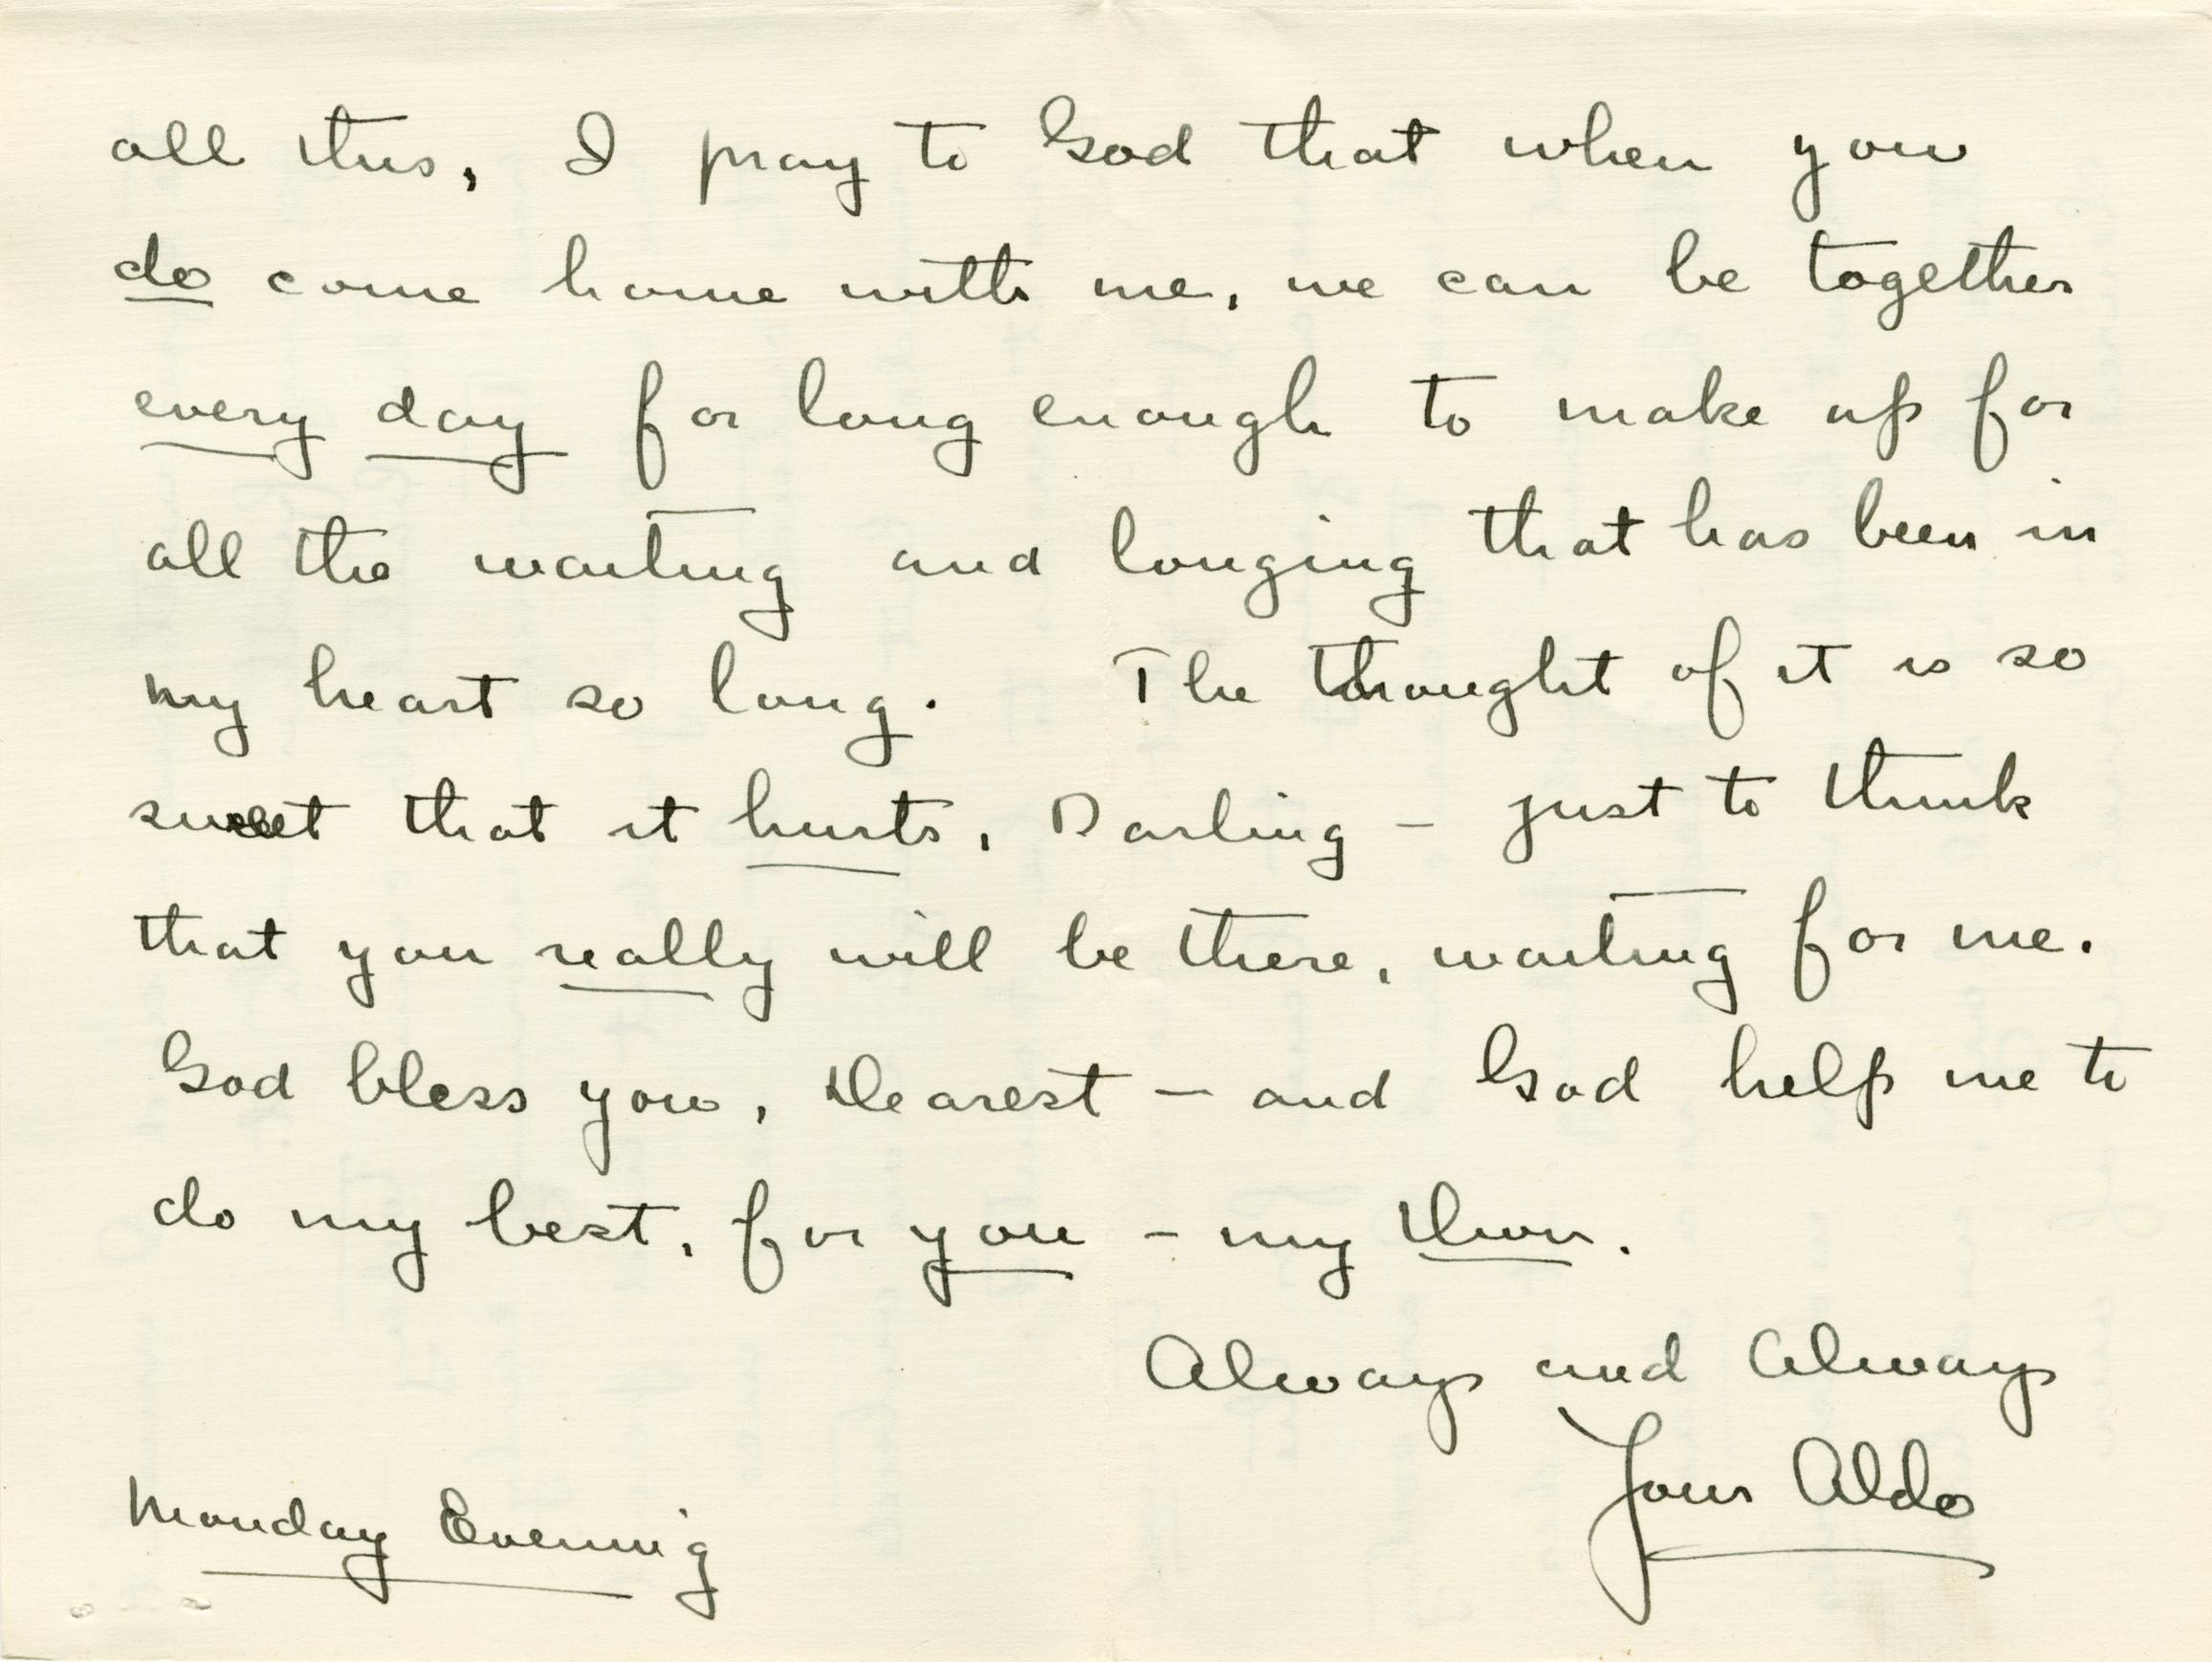 all this, I pray to God that when you
do come home with me, we can be together
every day for long enough to make up for
all the waiting and longing that has been in
my heart so long. The thought of it is so
sweet that it hurts, Darling - just to think
that you really will be there, waiting for me.
God bless you, Dearest - and God help me to
do my best, for you - my Own.
Always and Always
Your Aldo
Monday Evening